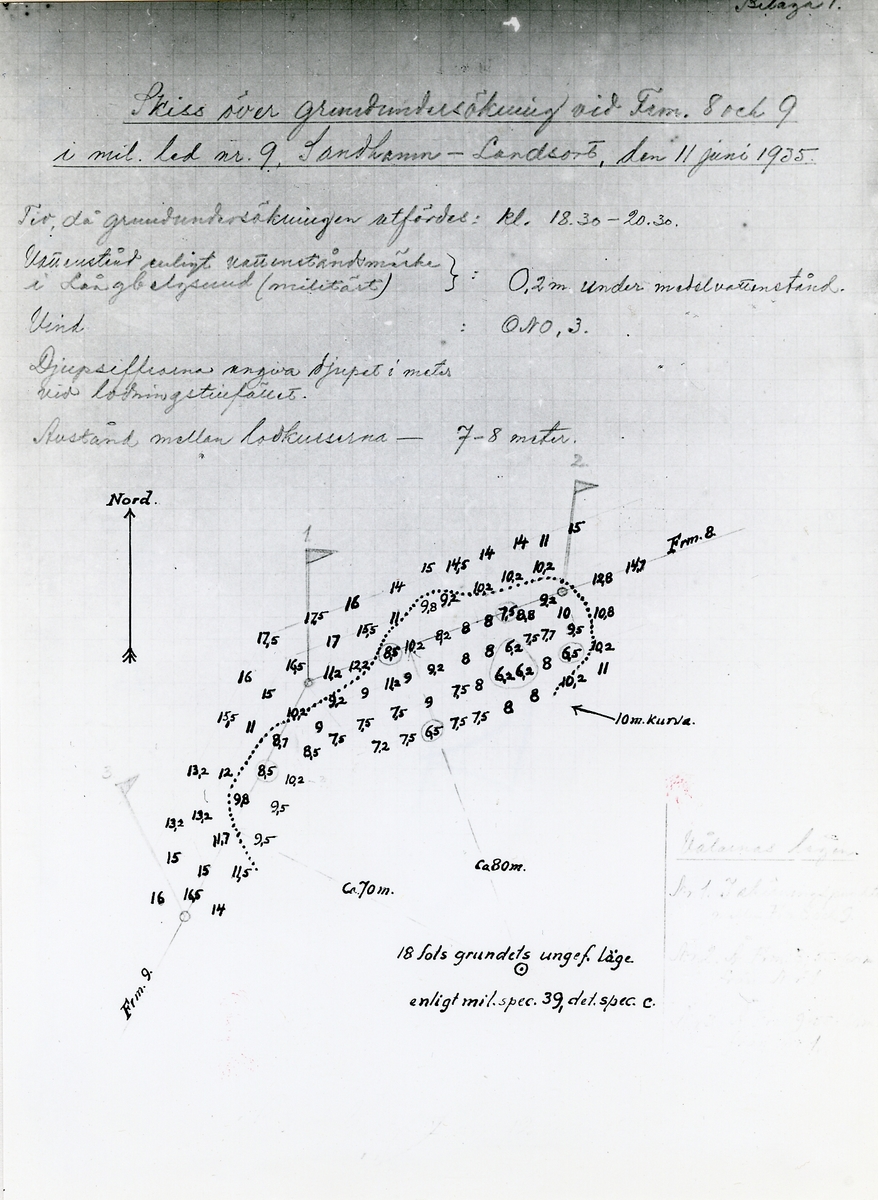 Bilaga 1.
Skiss över grundundersökning vid Frm. 8 och 9
i mil. led nr. 9, Sandhamn – Landsort, den 11 juni 1935.
Tid, då grundundersökningen utfördes: kl. 18.30 – 20.30.
Vattenstånd enligt vattenståndsmärke
i (militärt) } : 0,2 m under medelvattenstånd.
Vind : ONO, 3.
Djupsiffrorna angiva djupet i meter
vid lodningstillfället.
Avstånd mellan lodkurserna — 7–8 meter.
2
Nord.
1
15
14 11
14
Frm. 8.
15 14,5
14,7
10,2 10,2
12,8
14
10,2
16
9,8 9,2
9,2
17,5
11
7,5 8,8
10
10,8
15,5
8
8
17
8,2
7,5 7,7
9,5
17,5
10,2
6,2
8,5
8
8
6,5
10,2
16,5
11,2 12,2
9,2
6,2 6,2
8
11
16
11,2 9
10,2
15
9
7,5 8
8
9,2
9
8
10,2
7,5
15,5
7,5 7,5
10m. kurva.
11
9
7,5
6,5
8,7
7,5
7,5
8,5
7,2
3
13,2 12
8,5
10,2
9,8
9,5
13,2
13,2
11,7
9,5
15
15
11,5
Ca 80m.
16
16,5
Ca. 70m.
14
Frm. 9.
18 fots grundets ungef. läge
enligt mil. spec. 39, det. spec. c.